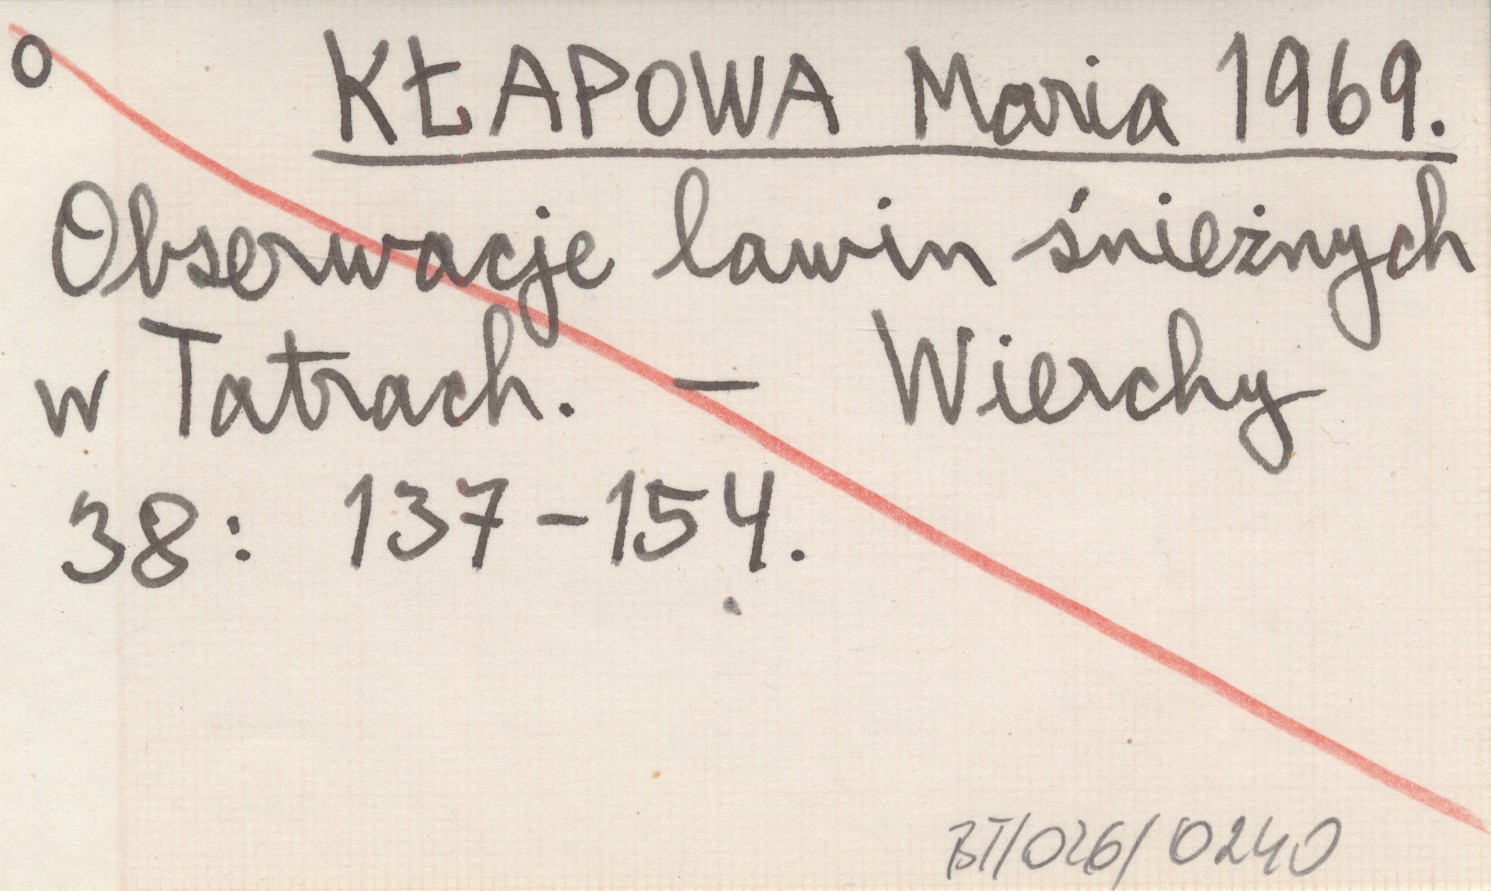 o KŁAPOWA Maria 1969.
Obserwacje lawin śnieżnych
w Tatrach. — Wierchy
38: 137-154.
BT/026/0240